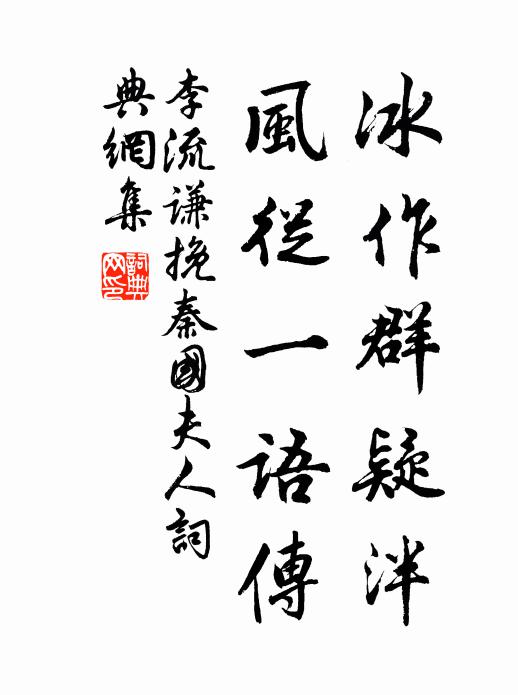 冰作群疑泮
風從一語傳
李流谦挽秦國夫人詞
典網集
詞典网印